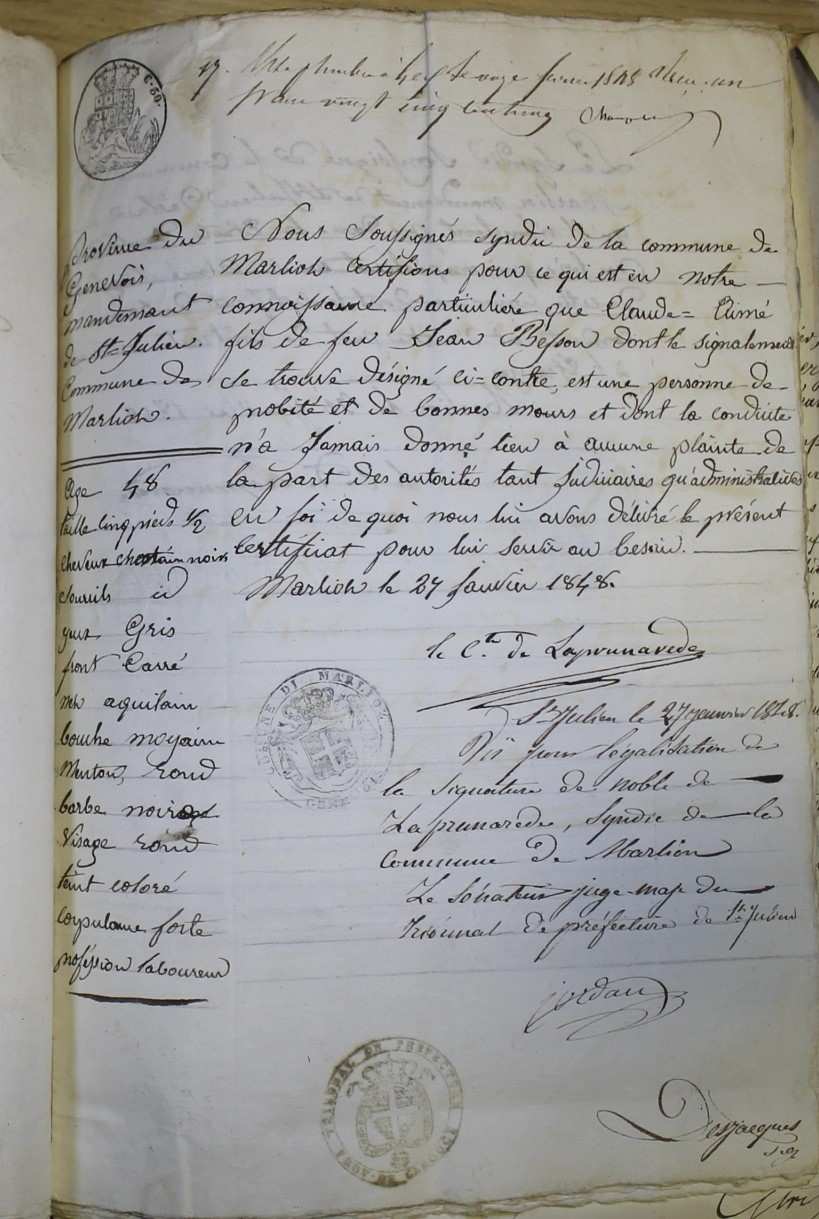 C. 50.
17.
vingt cinq centimes
Province du
Genevois,
mandement
de St=Julien.
Commune de
Marlioz.
Age 48
taille cinq pieds 1/2
cheveux chatain noirs
sourcils id
yeux Gris
front Carré
nez aquilain
bouche moyenne
Menton, rond
barbe noire
Visage rond
teint coloré
corpulance forte
proféssion laboureur
Nous Soussignés syndic de la commune de
Marlioz Certifions pour ce qui est en notre
connaissance particulière que Claude=Aimé
fils de feu Jean Besson dont le signalement
se trouve désigné ci=contre, est une personne de
probité et de bonnes mœurs et dont la conduite
n'a Jamais donné lieu à aucune plainte de
la part des autorités tant judiciaires qu'administratives
en foi de quoi nous lui avons délivré le présent
Certificat pour lui servir au besoin.
Marlioz le 27 Janvier 1848.
le Cte de Laprunarede
COMUNE DI MARLIOZ
St Julien le 27 janvier 1848.
Vû pour légalisation de
la signature de noble de
Laprunarede, syndic de la
commune de Marlioz
Le Sénateur juge-maje du
Tribunal de préfecture de St Julien
jordan
TRIBUNAL DE PREFECTURE
Desjacques